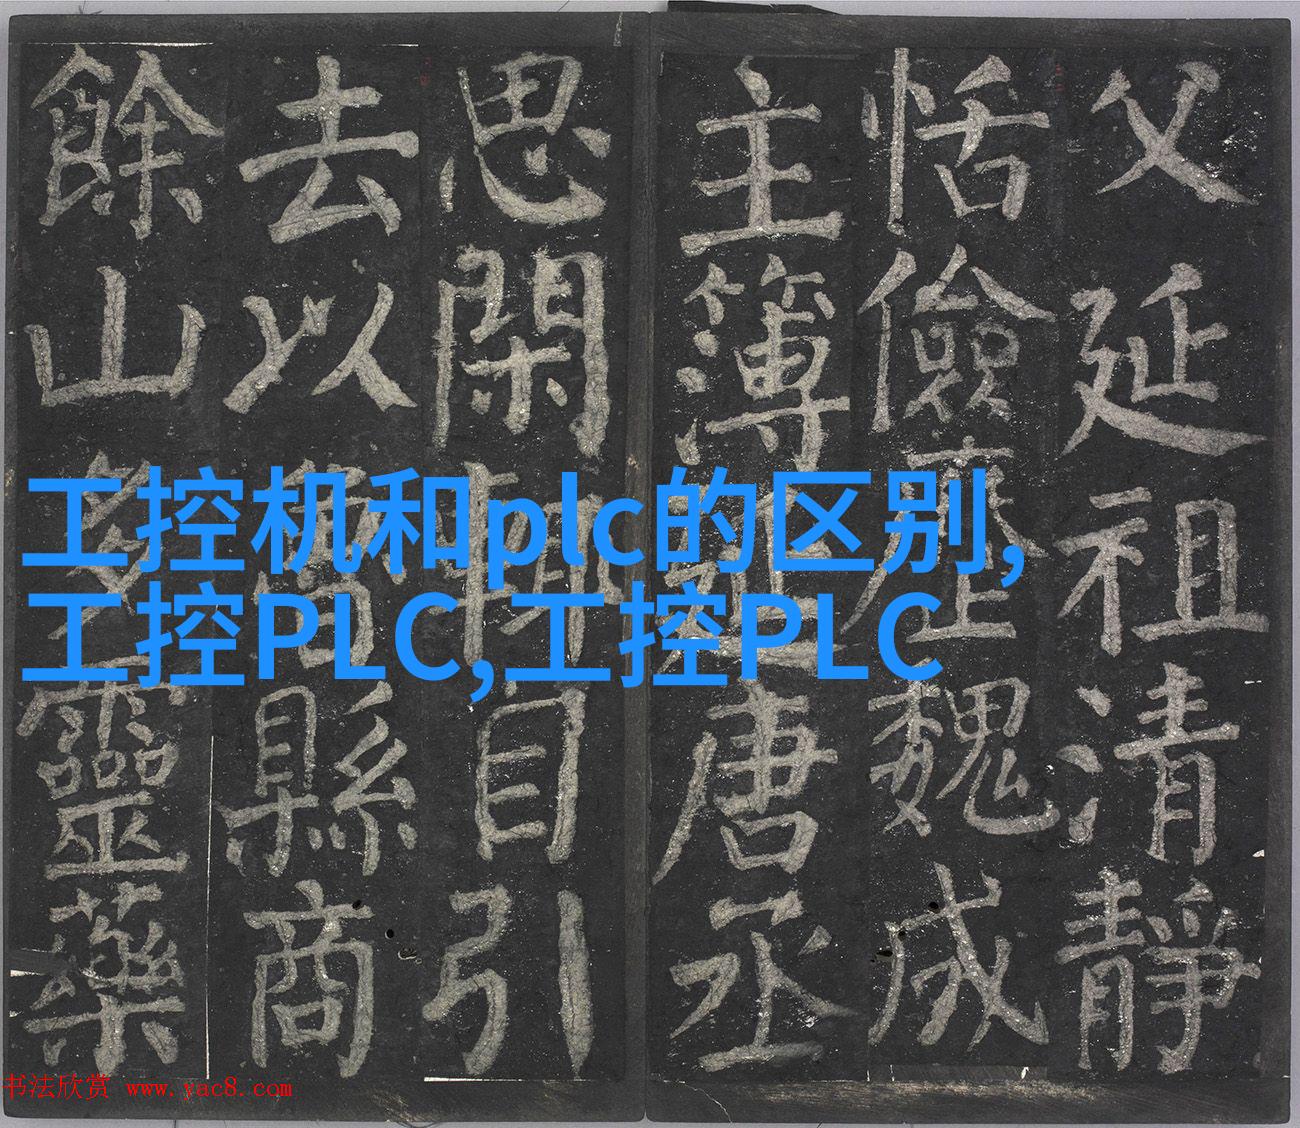 父延祖清靜
恬儉歷魏成
主簿延唐丞
思閑輒自引
去以魯縣商
餘山多靈藥
工控机和plc的区别,
工控PLC,工控PLC
书法欣赏 www.yac8.com